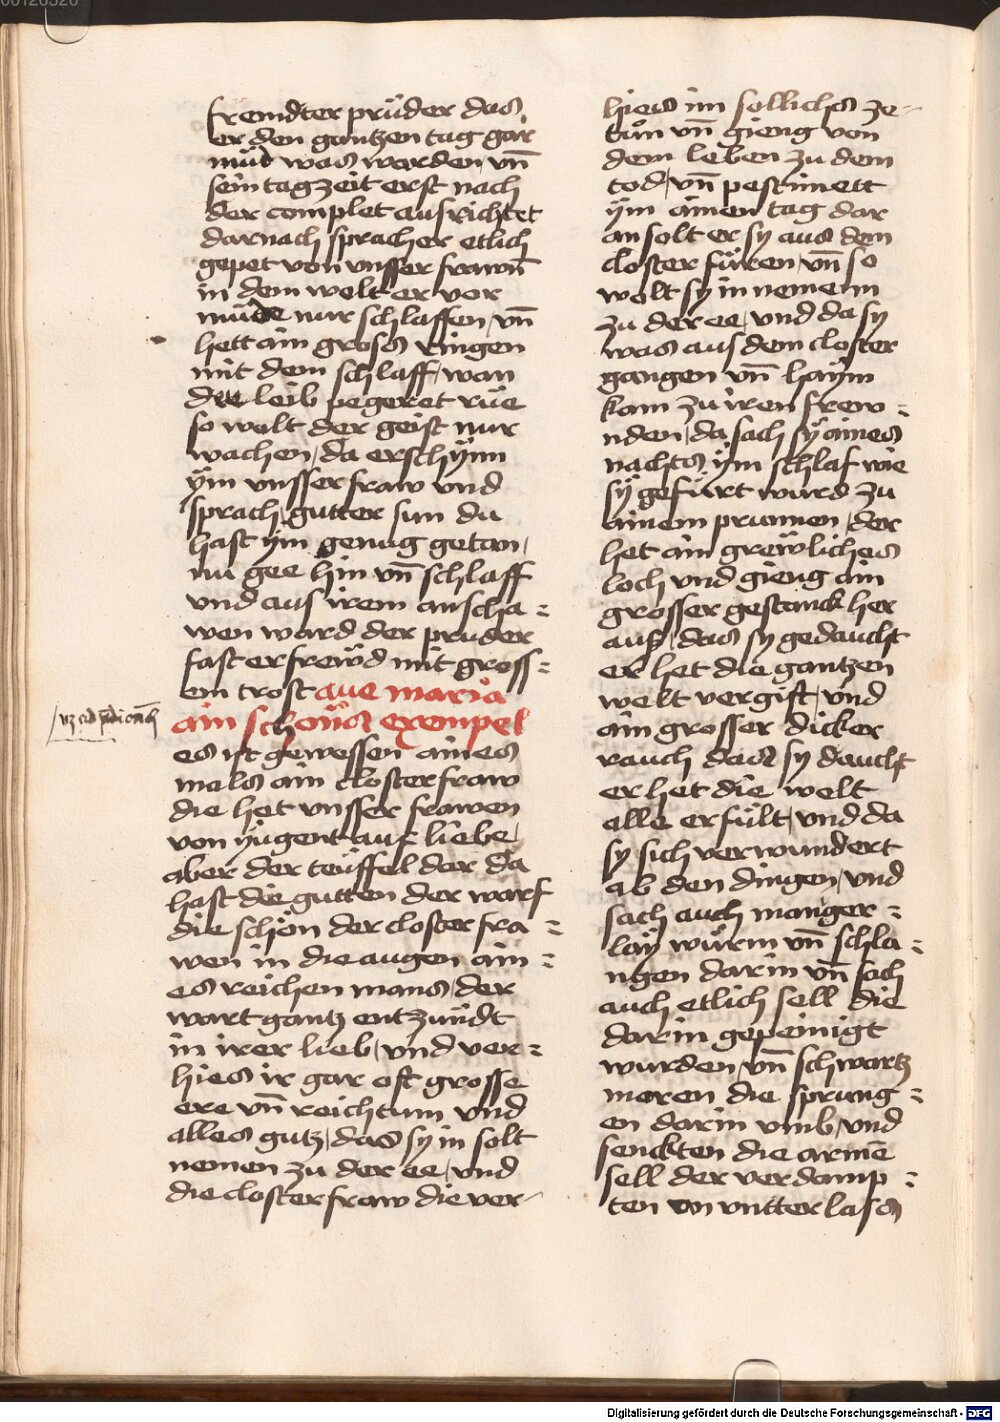 fremdter prüder das
er den gantzen tag gar
müd was warden vn̄
sein tagzeit erst nach
der complet ausrichtet
darnach sprach er etlich
gepet von vnsser frawn̄
in dem welt er vor
müde nur schlaffen, vn̄
hett ain gross ringen
mit dem schlaff, wan
der leib pegeret rüe
so wolt der geist nur
wachen, da erschÿnn
ÿm vnsser fraw vnd
sprach, gutter sun du
hast ÿm genug getan,
nu gee hin vn̄ schlaff
vnd aus irem anscha =
wen ward der pruder
fast erfrewd mit gross =
em trost aue maria
ain schons exempel
es ist gewessen aines
mals ain closterfraw
die het vnsser frawen
von yugent auf liebe,
aber der teüffel der da
hast die gutten der warf
die schön der closter fra =
wen in die augen ain =
es reichen mans, der
wart gantz entzündt
in irer lieb, vnd ver =
hies ir gar oft grosse
ere vn̄ reichtum vnd
alles gutz, das sy in solt
nemen zu der ee, vnd
die closterfraw die ver-
hies im sollichs ze -
tůn vn̄ gieng von
dem leben zu dem
tod, vn̄ pestimett
ÿm ainen tag dar
an solt er sy aus dem
closter füren, vn̄ so
wolt sy in nemenn
zu der ee, vnd da sy
was aus dem closter
gangen vn̄ haÿm
kam zu iren frew =
nden, da sach sÿ aines
nachts ÿm schlaf wie
sÿ gefürt wurd zu
ainem prunnen, der
het ain grewliches
loch vnd gieng ain
grosser gestanck her
aus, das sy gedaucht
er het die gantzen
welt vergift, vnd
ain grosser dicker
rauch das sy daucht
er het die welt
alle erfült, vnd da
sy sich verwundert
ab den dingen, vnd
sach auch manger =
lay würm vn̄ schla =
ngen darin vn̄ sach
auch etlich sell die
darin gepeinigt
wurden, vn̄ schwartz
moren die sprung =
en darin vmb, vnd
senckten die armē
sell der verdamp =
ten on vntterlass
Digitalisierung gefördert durch die Deutsche Forschungsgemeinschaft - DFG